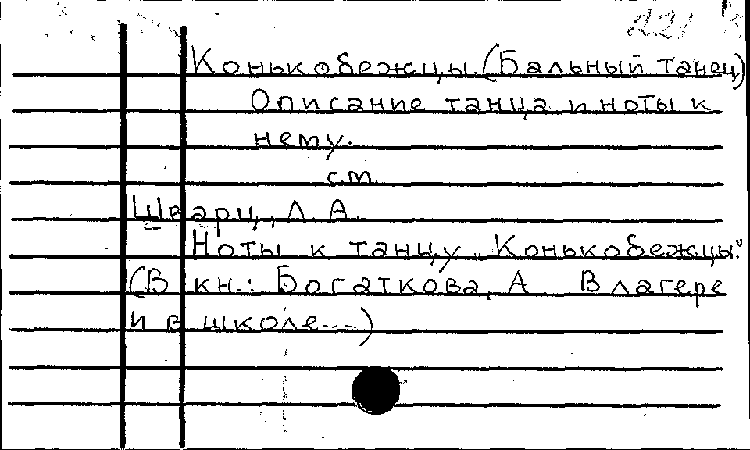 221
Конькобежцы (Бальный танец)
Описание танца и ноты к
нему.
см.
Шварц, Л. А.
Ноты к танцу „Конькобежцы."
(В кн.: Богаткова, А В лагере
и в школе...)